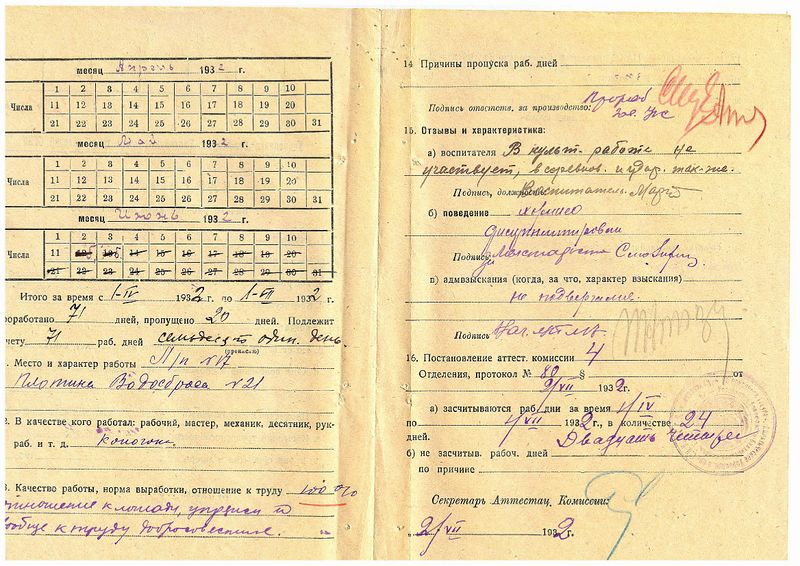 месяц Апрель 1932 г.
1 2 3 4 5 6 7 8 9 10
Числа 11 12 13 14 15 16 17 18 19 20
21 22 23 24 25 26 27 28 29 30 31
месяц Май 1932 г.
1 2 3 4 5 6 7 8 9 10
Числа 11 12 13 14 15 16 17 18 19 20
21 22 23 24 25 26 27 28 29 30 31
месяц Июнь 1932 г.
1 2 3 4 5 6 7 8 9 10
Числа 11 14 15 16 17 18 19 20
21 22 23 24 25 26 27 28 29 30 31
Итого за время с 1-IV 1932 г. по 1-VII 1932 г.
роработано 71 дней, пропущено 20 дней. Подлежит
чету 71 раб. дней семьдесят один день
(прописью)
. Место и характер работы П/п №17
Плотина Водосброса №21
2. В качестве кого работал: рабочий, мастер, механик, десятник, рук-
раб. и т. д. коногона
3. Качество работы, норма выработки, отношение к труду 100%
отношение к лошади, упряжи и
вообще к труду добросовестное.
14 Причины пропуска раб. дней
Подпись ответств. за производство: Прораб
15. Отзывы и характеристика:
а) воспитателя В культ. работе не
участвует, в соревнов. и удар. так-же.
Подпись, должн Воспитатель
б) поведение хорошо
дисциплинирован
Подпись
в) адмвзыскания (когда, за что, характер взыскания)
не подвергался.
Подпись
16. Постановление аттест. комиссии 4
Отделения, протокол № 80 § от
2/VII 1932 г.
а) засчитываются раб. дни за время 1/IV
по 1/VII 1932 г., в количестве 24
дней. Двадцать четыре
б) не засчитыв. рабоч. дней
по причине
Секретарь Аттестац. Комиссии:
2/VII 1932 г.